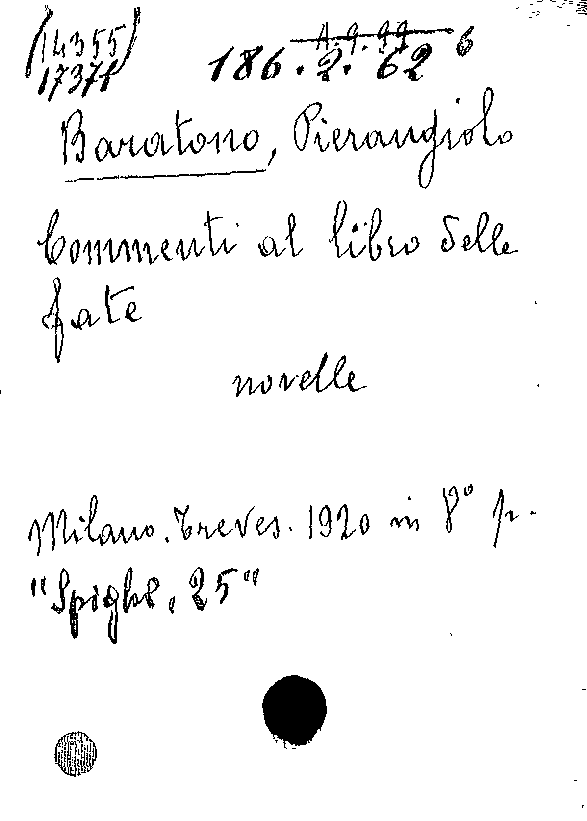 (14355)
17371
A.9.99
186.2.62 6
Baratono, Pierangiolo
Commenti al libro delle
fate
novelle
Milano. Treves. 1920 in 8° p.
"Spighe, 25"